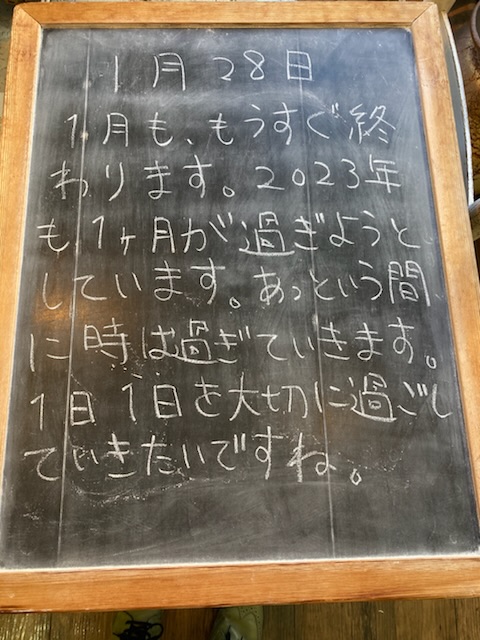 1月28日
1月も、もうすぐ終
わります。2023年
も、1ヶ月が過ぎようと
しています。あっという間
に時は過ぎていきます。
1日1日を大切に過ごし
ていきたいですね。